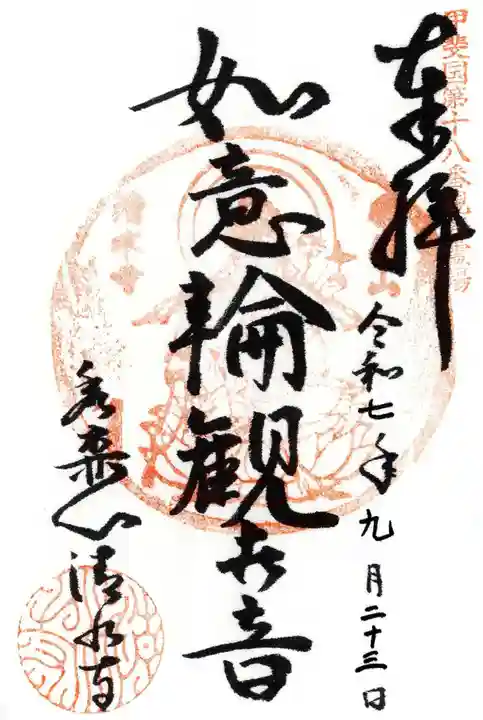 甲斐国第十八番観音霊場
奉拝
令和七年九月二十三日
如意輪観世音
清水寺